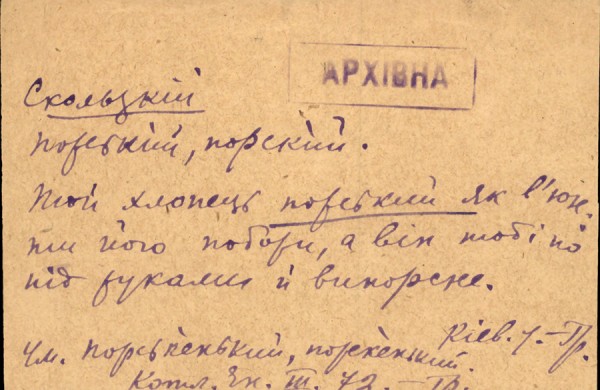 АРХІВНА
Скользкій
порський, порский.
Той хлопець порський як в'юн.
ти його побори, а він тобі по
під руками й випорсне.
Кіев. у. – Гр.
Ум. порськенький, порскенький.
Котл. Ен. III. 72. – Гр.